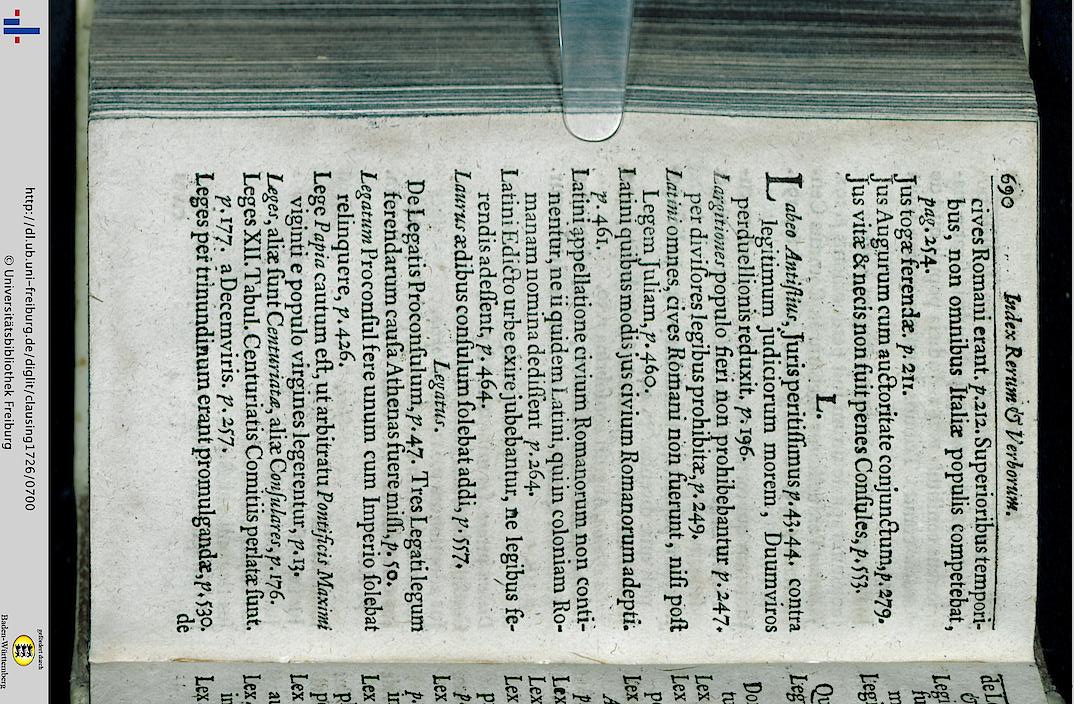 690 Index Rerum & Verborum.
cives Romani erant. p. 212. Superioribus tempori-
bus, non omnibus Italiæ populis competebat,
pag. 254.
Jus togæ ferendæ. p. 211.
Jus Augurum cum auctoritate conjunctum, p. 279.
Jus vitæ & necis non fuit penes Consules, p. 553.
L.
Labeo Antistius, Juris peritissimus p. 43. 44. contra
legitimum judiciorum morem, Duumviros
perduellionis reduxit, p. 196.
Largitiones populo fieri non prohibebantur p. 247.
per divisores legibus prohibitæ, p. 249.
Latini omnes, cives Romani non fuerunt, nisi post
Legem Juliam, p. 460.
Latini quibus modis jus civium Romanorum adepti.
p. 461.
Latini appellatione civium Romanorum non conti-
nentur, ne ii quidem Latini, qui in coloniam Ro-
manam nomina dedissent p. 264.
Latini Edicto urbe exire jubebantur, ne legibus fe-
rendis adessent, p. 464.
Laurus ædibus consulum solebat addi, p. 557.
Legatus.
De Legatis Proconsulum, p. 47. Tres Legati legum
ferendarum causa Athenas fuere missi, p. 50.
Legatum Proconsul fere unum cum Imperio solebat
relinquere, p. 426.
Lege Papia cautum est, ut arbitratu Pontificis Maximi
viginti e populo virgines legerentur, p. 13.
Leges, aliæ sunt Centuriatæ, aliæ Consulares, p. 176.
Leges XII. Tabul. Centuriatis Comitiis perlatæ sunt.
p. 177. a Decemviris. p. 257.
Leges per trinundinum erant promulgandæ, p. 530.
de
de L
Legi
Legi
Leg
Qu
Do
Lex
Lex
Lex
Lex
Lex
Lex
Lex
Lex
Lex
Lex
Lex
Lex
http://dl.ub.uni-freiburg.de/diglit/clausing1726/0700
© Universitätsbibliothek Freiburg
gefördert durch
Baden-Württemberg